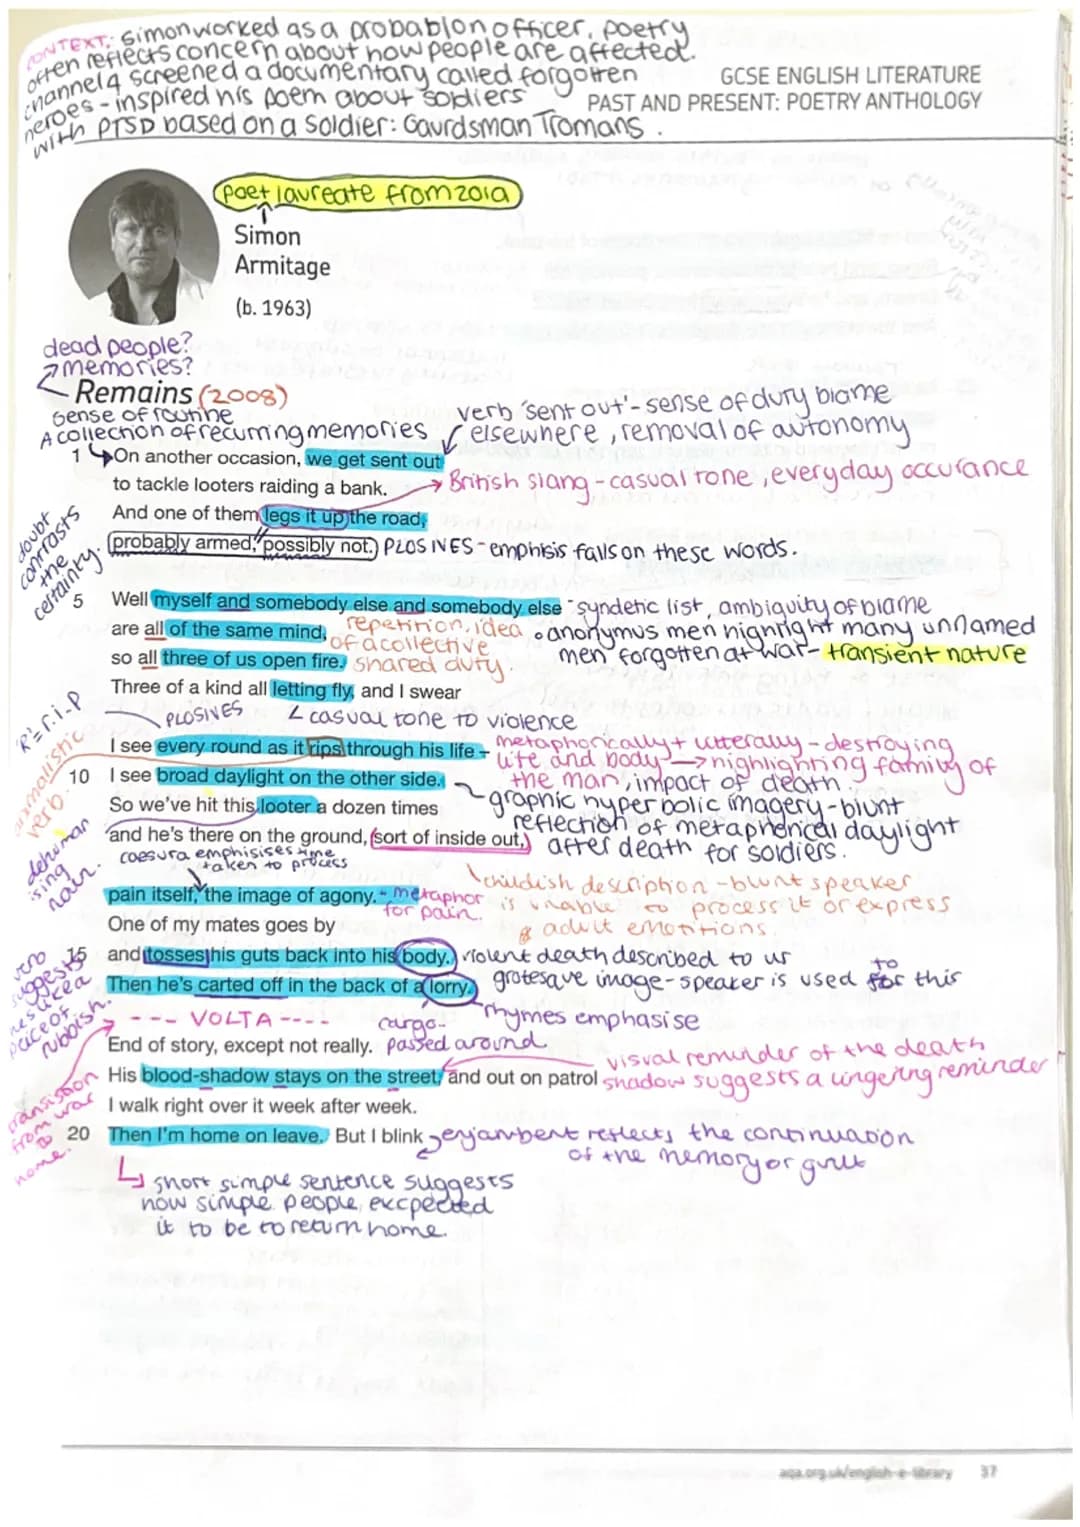 CONTEXT: Simon worked as a probablon officer, poetry
often reflects concern about how people are affected.
channel 4 screened a documentary called forgotten
heroes - inspired his poem about soldiers
with PTSD based on a soldier: Gaurdsman Tromans.
GCSE ENGLISH LITERATURE
PAST AND PRESENT: POETRY ANTHOLOGY
poet laureate from 2019
Simon
Armitage
(b. 1963)
dead people?
memories?
Remains (2008)
sense of routine
A collection of recurring memories
verb 'sent out' - sense of duty blame
elsewhere, removal of autonomy
1 On another occasion, we get sent out
to tackle looters raiding a bank.
British slang - casual tone, everyday occurance
And one of them legs it up the road,
probably armed, possibly not.
PLOSIVES - emphisis falls on these words.
doubt
contrasts
the
certainty.
5 Well myself and somebody else and somebody else
syndetic list, ambiguity of blame
are all of the same mind,
repetition, idea
of a collective
shared duty.
anonymus men highright many unnamed
men forgotten at war - transient nature
so all three of us open fire.
Three of a kind all letting fly, and I swear
PLOSIVES
casual tone to violence
'R' = r.i.p
I see every round as it rips through his life -
metaphorically + litterally - destroying
life and body → highlighting family of
the man, impact of death.
animalistic
verb.
10 I see broad daylight on the other side.
graphic hyperbolic imagery - blunt
reflection of metaphorical daylight
after death for soldiers.
So we've hit this looter a dozen times
and he's there on the ground, sort of inside out,
dehuman
ising
noun.
caesura emphisises time
taken to process
childish description - blunt speaker
is unable to process it or express
adult emotitions.
pain itself, the image of agony.
- metaphor
for pain.
One of my mates goes by
15 and tosses his guts back into his body.
violent death described to us
Then he's carted off in the back of a lorry.
grotesque image - speaker is used to this
rhymes emphasise
verb
suggests
hes like a
peice of
rubbish.
---- VOLTA ----
cargo -
passed around
End of story, except not really.
visual reminder of the death
shadow suggests a lingering reminder
His blood-shadow stays on the street, and out on patrol
I walk right over it week after week.
transison
from war
to
home.
20 Then I'm home on leave. But I blink
enjambent reflects the continuation
of the memory or guilt
short simple sentence suggests
how simple people excpected
it to be to return home.
aqa.org.uk/english-e-library 37